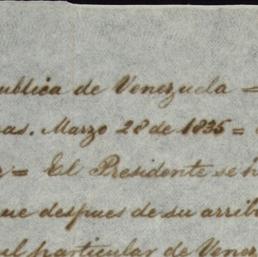 publica de Venezuela =
as. Marzo 28 de 1835 =
= El Presidente se h
ue despues de su arrib
ul particular de Venez